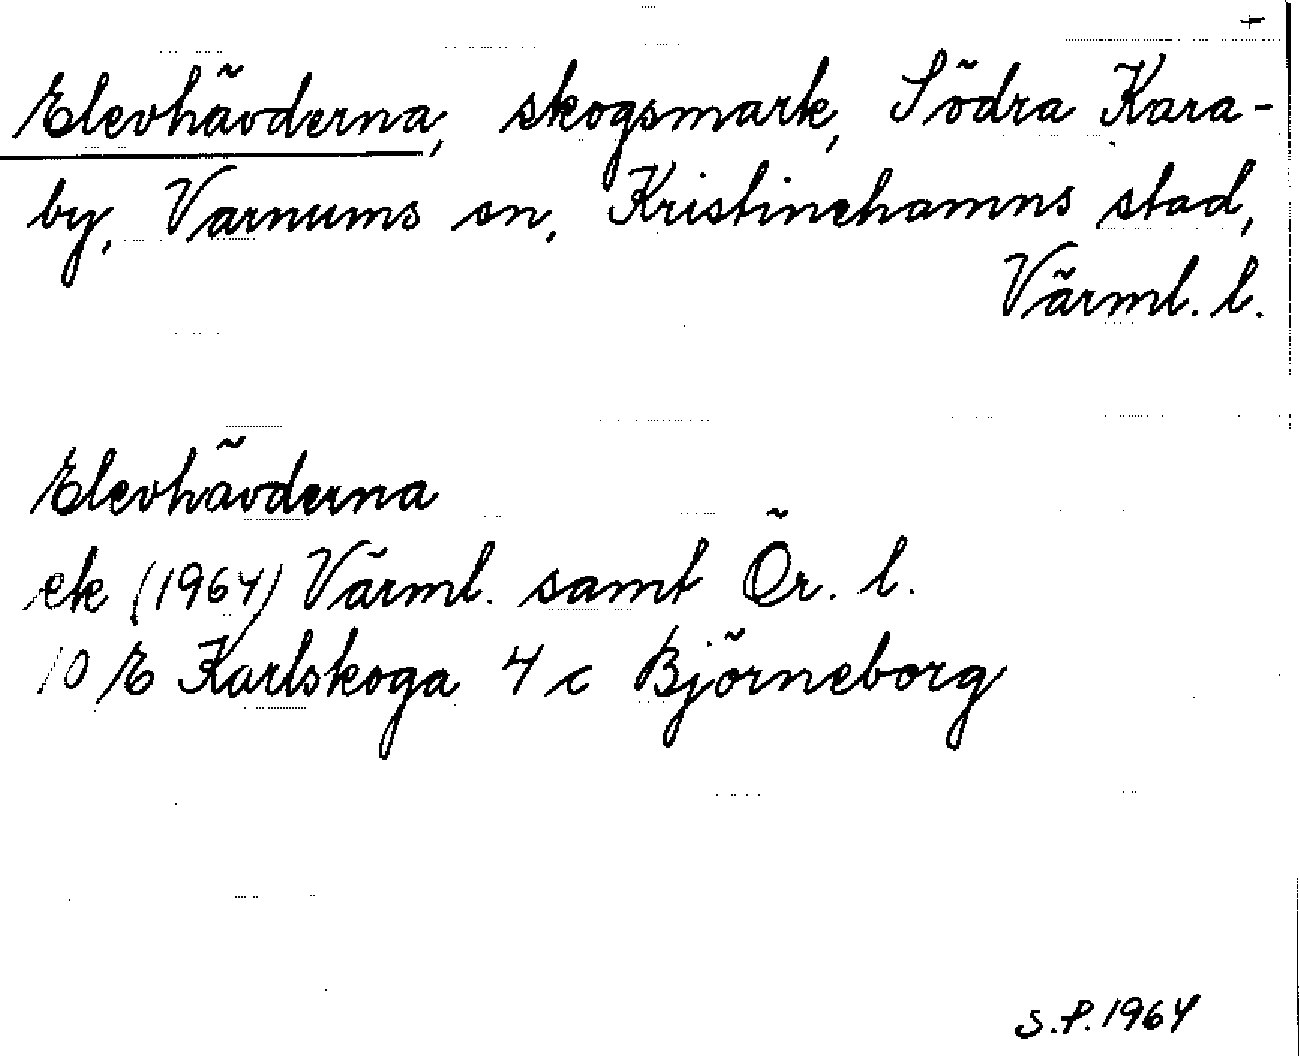 Elevhävderna, skogsmark, Södra Kara-
by, Varnums sn, Kristinehamns stad,
Värml. l.
Elevhävderna
ek (1964) Värml. samt Ör. l.
10 E Karlskoga 4 c Björneborg
S.P. 1964